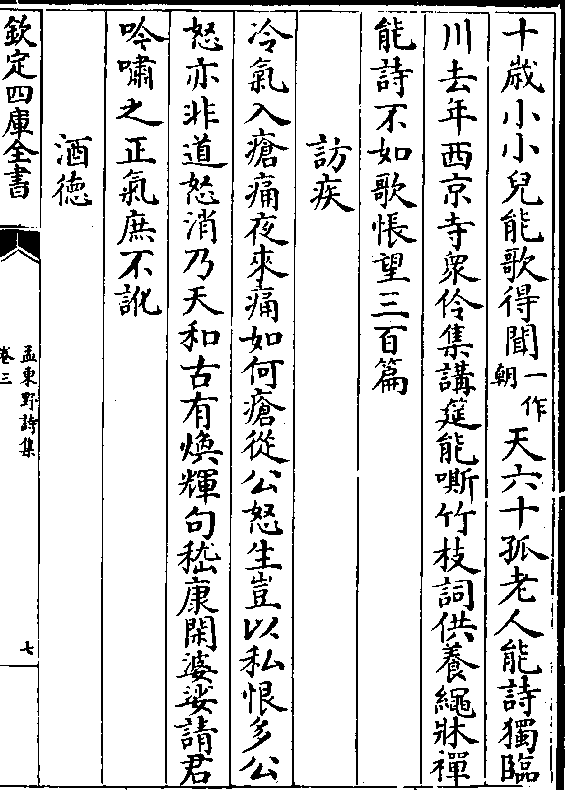 十歲小小兒能歌得聞一作朝天六十孤老人能詩獨臨
川去年西京寺衆伶集講筵能嘶竹枝詞供養繩牀禪
能詩不如歌悵望三百篇
訪疾
冷氣入瘡痛夜來痛如何瘡從公怒生豈以私恨多公
怒亦非道怒消乃天和古有煥輝句嵇康閑婆娑請君
吟嘯之正氣庶不訛
酒德
欽定四庫全書
孟東野詩集
卷三
七